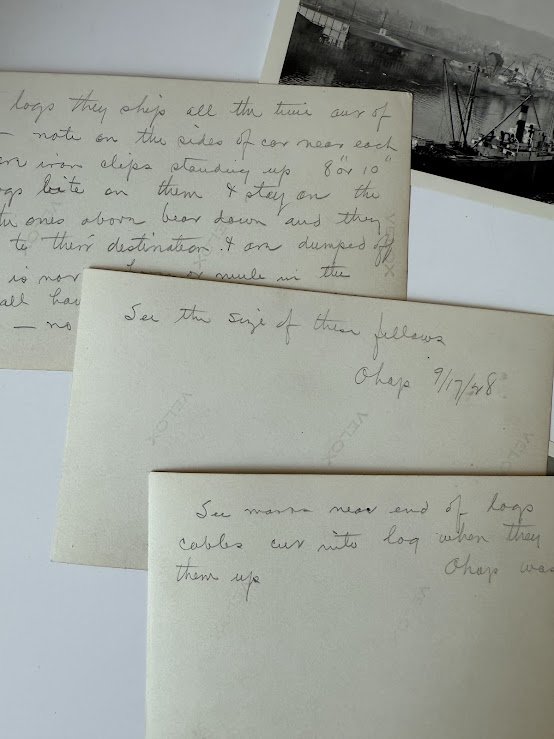 logs they ship all the time out of
— note on the sides of car near each
iron clips standing up 8" or 10"
ogs bite on them & stay on the
ones above bear down and they
to their destination & are dumped off
is nor or mule in the
all hav
— no
VELOX
VELOX
See the size of these fellows
Ohop 9/17/28
VELOX
VELOX
See marks near end of logs
cables cut into log when they
them up Ohop was
VELOX
VELOX